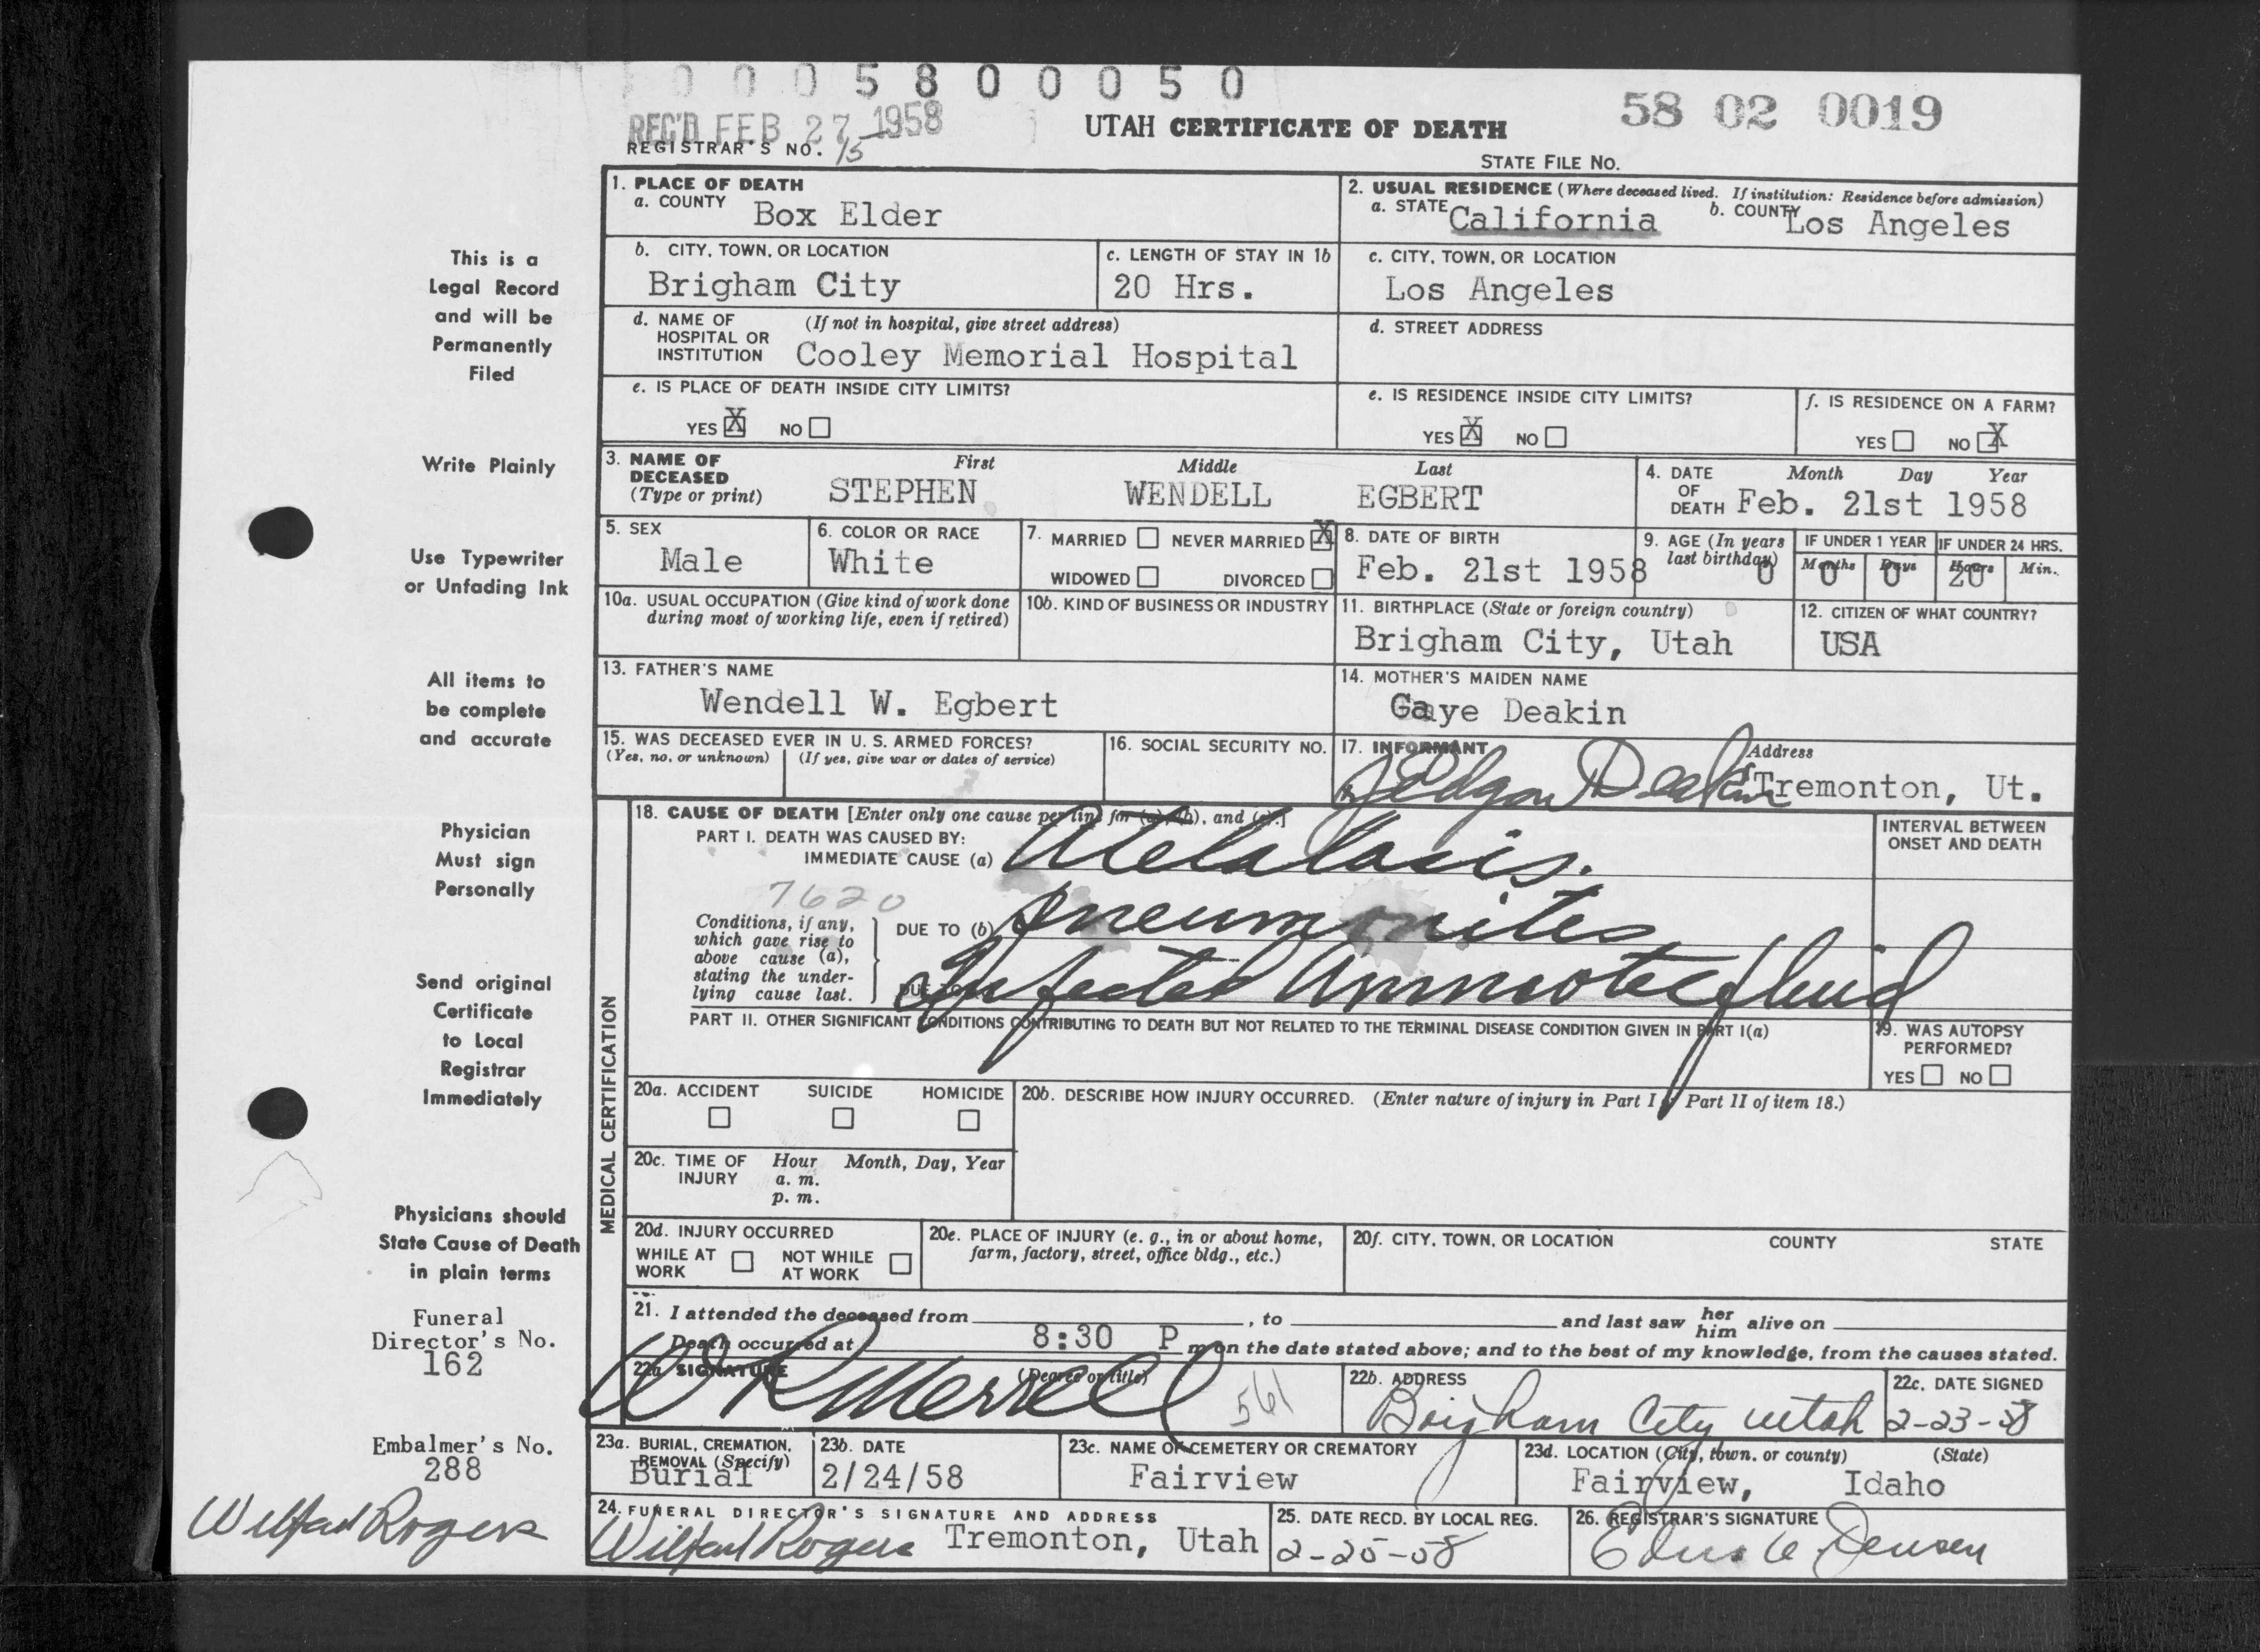 0 0 0 5 8 0 0 0 5 0
REC'D FEB 27 1958
58 02 0019
UTAH CERTIFICATE OF DEATH
REGISTRAR'S NO. 15
STATE FILE NO.
1. PLACE OF DEATH
a. COUNTY Box Elder
2. USUAL RESIDENCE (Where deceased lived. If institution: Residence before admission)
a. STATE California b. COUNTY Los Angeles
b. CITY, TOWN, OR LOCATION Brigham City
c. LENGTH OF STAY IN 1b 20 Hrs.
c. CITY, TOWN, OR LOCATION Los Angeles
d. NAME OF HOSPITAL OR INSTITUTION (If not in hospital, give street address) Cooley Memorial Hospital
d. STREET ADDRESS
e. IS PLACE OF DEATH INSIDE CITY LIMITS?
YES X NO
e. IS RESIDENCE INSIDE CITY LIMITS?
YES X NO
f. IS RESIDENCE ON A FARM?
YES NO X
3. NAME OF DECEASED (Type or print)
First Middle Last
STEPHEN WENDELL EGBERT
4. DATE OF DEATH Month Day Year
Feb. 21st 1958
5. SEX Male
6. COLOR OR RACE White
7. MARRIED NEVER MARRIED X
WIDOWED DIVORCED
8. DATE OF BIRTH Feb. 21st 1958
9. AGE (In years last birthday) 0
IF UNDER 1 YEAR Months 0 Days 0
IF UNDER 24 HRS. Hours 20 Min.
10a. USUAL OCCUPATION (Give kind of work done during most of working life, even if retired)
10b. KIND OF BUSINESS OR INDUSTRY
11. BIRTHPLACE (State or foreign country) Brigham City, Utah
12. CITIZEN OF WHAT COUNTRY? USA
13. FATHER'S NAME Wendell W. Egbert
14. MOTHER'S MAIDEN NAME Gaye Deakin
15. WAS DECEASED EVER IN U. S. ARMED FORCES?
(Yes, no, or unknown) (If yes, give war or dates of service)
16. SOCIAL SECURITY NO.
17. INFORMANT Edgar Deakin
Address Tremonton, Ut.
MEDICAL CERTIFICATION
18. CAUSE OF DEATH [Enter only one cause per line for (a), (b), and (c).]
PART I. DEATH WAS CAUSED BY:
IMMEDIATE CAUSE (a) Atelatasis.
7620
Conditions, if any, which gave rise to above cause (a), stating the underlying cause last.
DUE TO (b) Pneumonites
DUE TO Infected Amniotic fluid
INTERVAL BETWEEN ONSET AND DEATH
PART II. OTHER SIGNIFICANT CONDITIONS CONTRIBUTING TO DEATH BUT NOT RELATED TO THE TERMINAL DISEASE CONDITION GIVEN IN PART I(a)
19. WAS AUTOPSY PERFORMED?
YES NO
20a. ACCIDENT SUICIDE HOMICIDE
20b. DESCRIBE HOW INJURY OCCURRED. (Enter nature of injury in Part I or Part II of item 18.)
20c. TIME OF INJURY Hour a. m. p. m. Month, Day, Year
20d. INJURY OCCURRED
WHILE AT WORK NOT WHILE AT WORK
20e. PLACE OF INJURY (e. g., in or about home, farm, factory, street, office bldg., etc.)
20f. CITY, TOWN, OR LOCATION COUNTY STATE
21. I attended the deceased from , to and last saw her him alive on
Death occurred at 8:30 P m on the date stated above; and to the best of my knowledge, from the causes stated.
22a. SIGNATURE (Degree or title) W R Merrell
561
22b. ADDRESS Brigham City Utah
22c. DATE SIGNED 2-23-58
23a. BURIAL, CREMATION, REMOVAL (Specify) Burial
23b. DATE 2/24/58
23c. NAME OF CEMETERY OR CREMATORY Fairview
23d. LOCATION (City, town, or county) (State) Fairview, Idaho
24. FUNERAL DIRECTOR'S SIGNATURE AND ADDRESS
Wilford Rogers Tremonton, Utah
25. DATE RECD. BY LOCAL REG. 2-25-58
26. REGISTRAR'S SIGNATURE
Jensen
This is a
Legal Record
and will be
Permanently
Filed
Write Plainly
Use Typewriter
or Unfading Ink
All items to
be complete
and accurate
Physician
Must sign
Personally
Send original
Certificate
to Local
Registrar
Immediately
Physicians should
State Cause of Death
in plain terms
Funeral
Director's No.
162
Embalmer's No.
288
Wilford Rogers